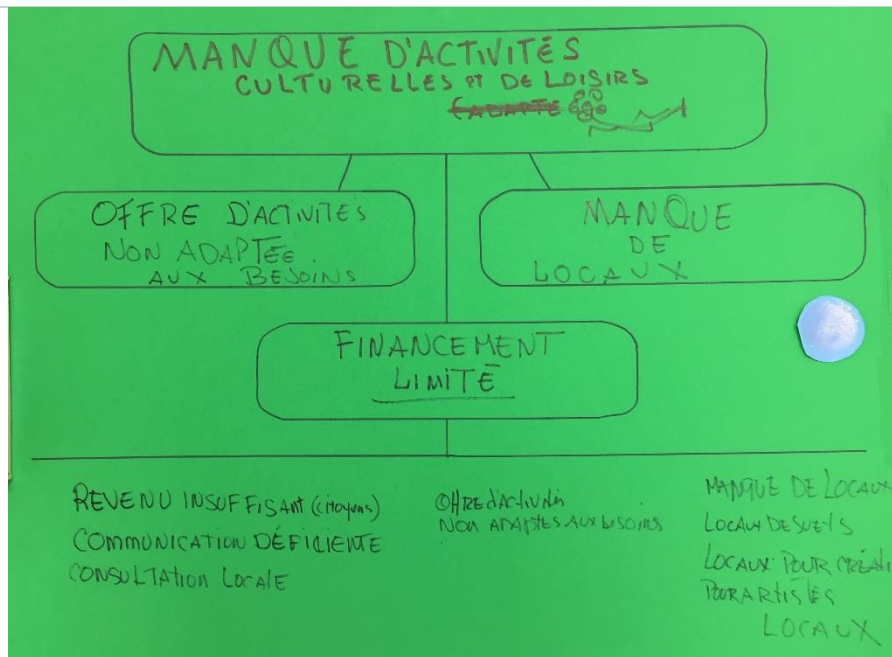 MANQUE D'ACTIVITÉS
CULTURELLES et DE LOISIRS
OFFRE D'ACTIVITES
NON ADAPTÉE
AUX BESOINS
MANQUE
DE
LOCAUX
FINANCEMENT
LIMITÉ
REVENU INSUFFISANT (citoyens)
COMMUNICATION DÉFICIENTE
CONSULTATION LOCALE
Offre d'activités
NON ADAPTES AUX BESOINS
MANQUE DE LOCAUX
LOCAUX DESUETS
LOCAUX POUR CRÉATI
POUR ARTISTES
LOCAUX